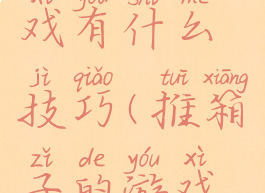 xì yǒu shí me
戏有什么
jì qiǎo tuī xiāng
技巧(推箱
zǐ de yóu xì
子的游戏